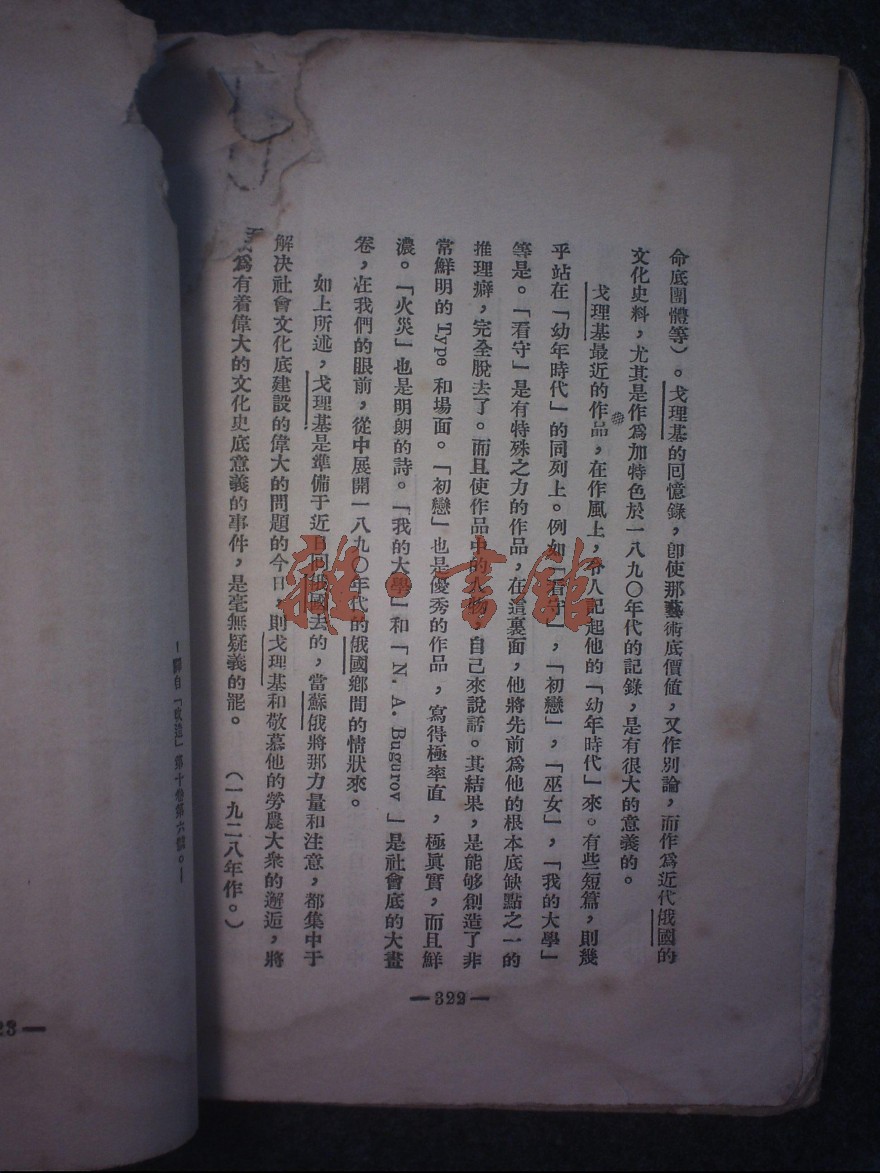 命底團體等）。戈理基的回憶錄，卽使那藝術底價値，又作別論，而作爲近代俄國的
文化史料，尤其是作爲加特色於一八九〇年代的記錄，是有很大的意義的。
戈理基最近的作品，在作風上，令人記起他的「幼年時代」來。有些短篇，則幾
乎站在「幼年時代」的同列上。例如「看守」，「初戀」，「巫女」，「我的大學」
等是。「看守」是有特殊之力的作品，在這裏面，他將先前爲他的根本底缺點之一的
推理癖，完全脫去了。而且使作品中的人物，自己來說話。其結果，是能够創造了非
常鮮明的 Type 和場面。「初戀」也是優秀的作品，寫得極率直，極眞實，而且鮮
濃。「火災」也是明朗的詩。「我的大學」和「N. A. Bugurov」是社會底的大畫
卷，在我們的眼前，從中展開一八九〇年代的俄國鄉間的情狀來。
如上所述，戈理基是準備于近日囘俄國去的，當蘇俄將那力量和注意，都集中于
解决社會文化底建設的偉大的問題的今日，則戈理基和敬慕他的勞農大衆的邂逅，將
成爲有着偉大的文化史底意義的事件，是毫無疑義的罷。 （一九二八年作。）
—譯自「改造」第十卷第六號。—
—322—
23—
雜·書館